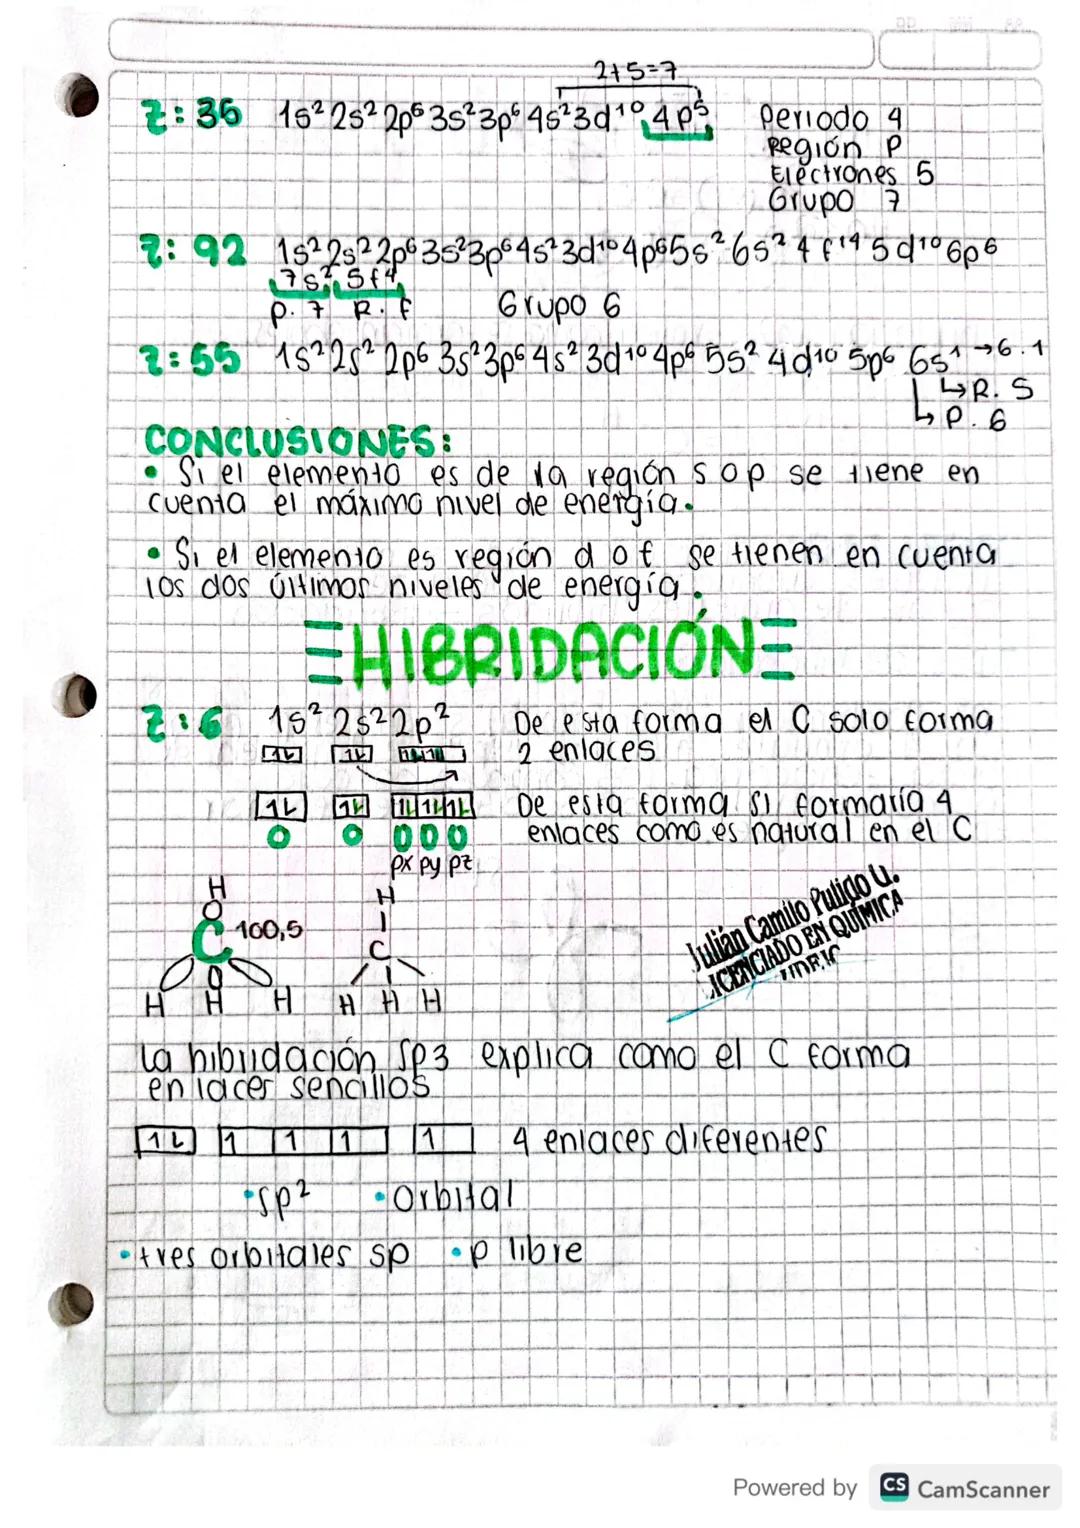 2+5=7
Z: 36 1s² 2s² 2p⁶ 3s² 3p⁶ 4s² 3d¹⁰ 4p⁵ Periodo 4
Región P
Electrones 5
Grupo 7
Z: 92 1s² 2s² 2p⁶ 3s² 3p⁶ 4s² 3d¹⁰ 4p⁶ 5s² 6s² 4f¹⁴ 5d¹⁰ 6p⁶
7s² 5f⁴
P. 7 R. f Grupo 6
Z: 55 1s² 2s² 2p⁶ 3s² 3p⁶ 4s² 3d¹⁰ 4p⁶ 5s² 4d¹⁰ 5p⁶ 6s¹ →6.1
↳R. S
↳P. 6
CONCLUSIONES:
• Si el elemento es de la región s o p se tiene en
cuenta el máximo nivel de energía.
• Si el elemento es región d o f se tienen en cuenta
los dos últimos niveles de energía.
HIBRIDACIÓN
Z: 6 1s² 2s² 2p² De esta forma el C solo forma
2 enlaces
De esta forma si formaría 4
enlaces como es natural en el C
px py pz
H H
C 100,5
C
H H H H H H
Julián Camilo Pulido U.
LICENCIADO EN QUÍMICA
La hibridación sp3 explica como el C forma
enlaces sencillos
1 1 1 1 4 enlaces diferentes
•sp² •orbital
•tres orbitales sp •p libre
Powered by CS CamScanner